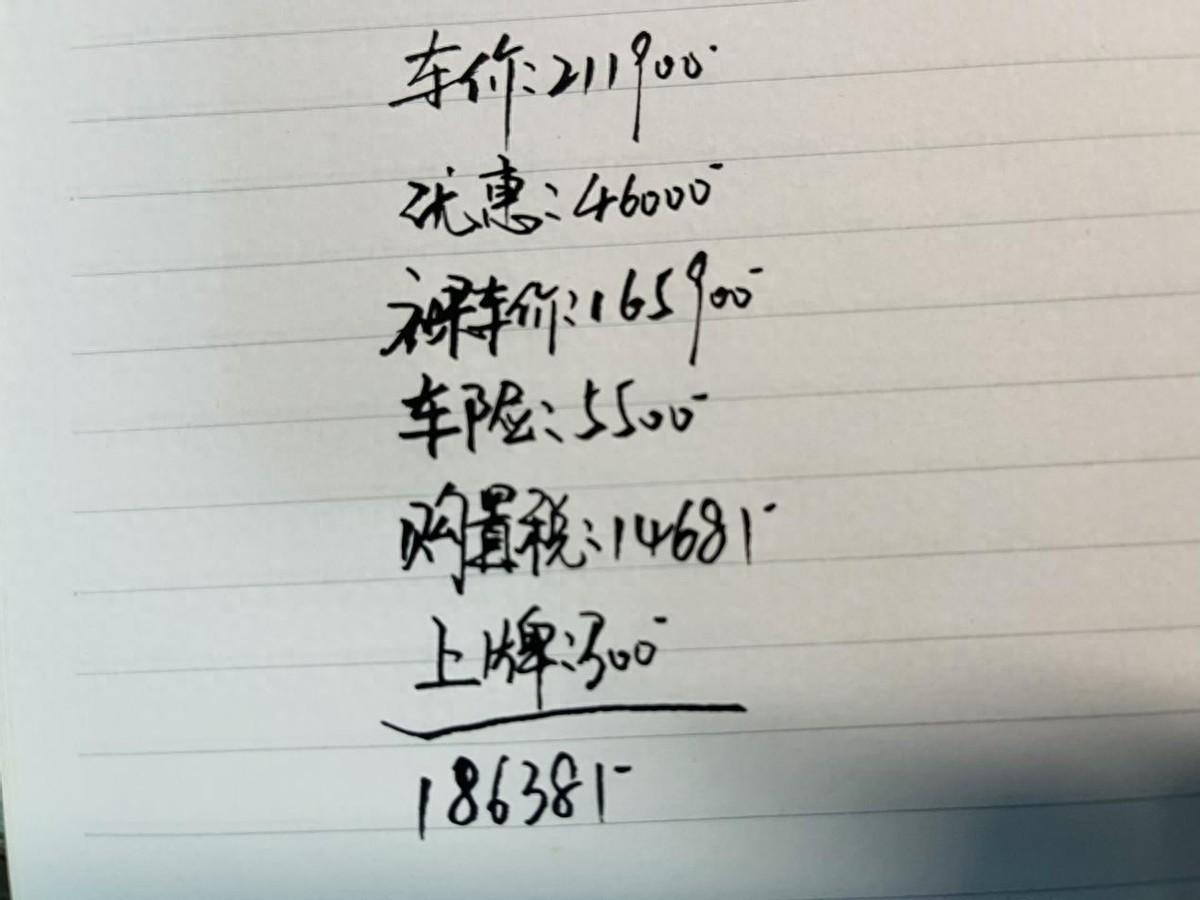 车价:211900-
优惠:46000-
裸车价:165900-
车险:5500-
购置税:14681-
上牌:300-
186381-